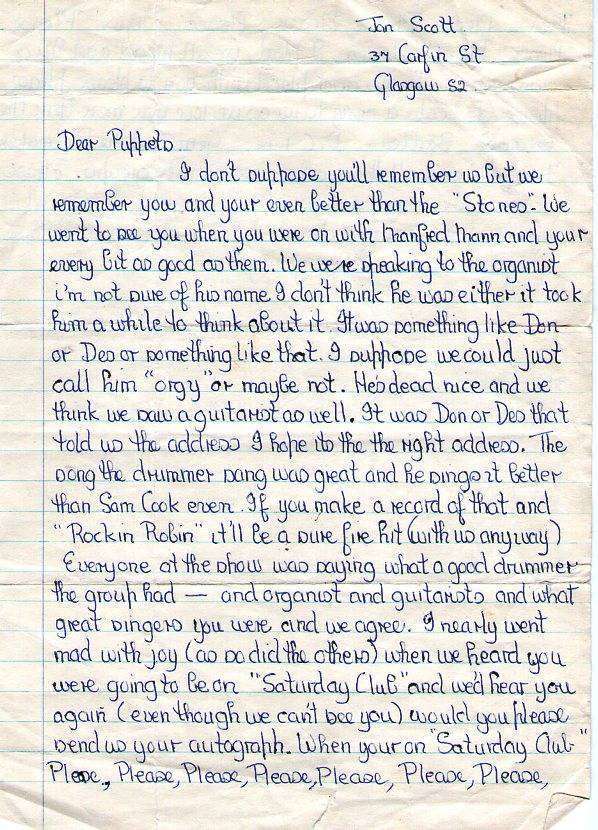 Jan Scott
37 Carfin St
Glasgow S2
Dear Puppets
I don't suppose you'll remember us but we
remember you and your even better than the "Stones". We
went to see you when you were on with Manfred Mann and your
every bit as good as them. We were speaking to the organist
i'm not sure of his name I don't think he was either it took
him a while to think about it. It was something like Don
or Des or something like that. I suppose we could just
call him "orgy" or maybe not. Hes dead nice and we
think we saw a guitarist as well. It was Don or Des that
told us the address I hope its the the right address. The
song the drummer sang was great and he sings it better
than Sam Cook even. If you make a record of that and
"Rockin Robin" it'll be a sure fire hit (with us anyway)
Everyone at the show was saying what a good drummer
the group had — and organist and guitarists and what
great singers you were and we agree. I nearly went
mad with joy (as so did the others) when we heard you
were going to be on "Saturday Club" and we'd hear you
again (even though we can't see you) would you please
send us your autograph. When your on "Saturday Club"
Please, Please, Please, Please, Please, Please, Please,